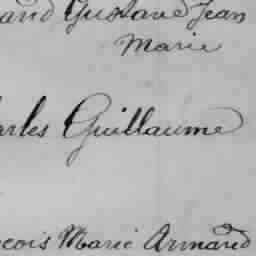 and Gustave Jean
Marie
arles Guillaume
cois Marie Armand